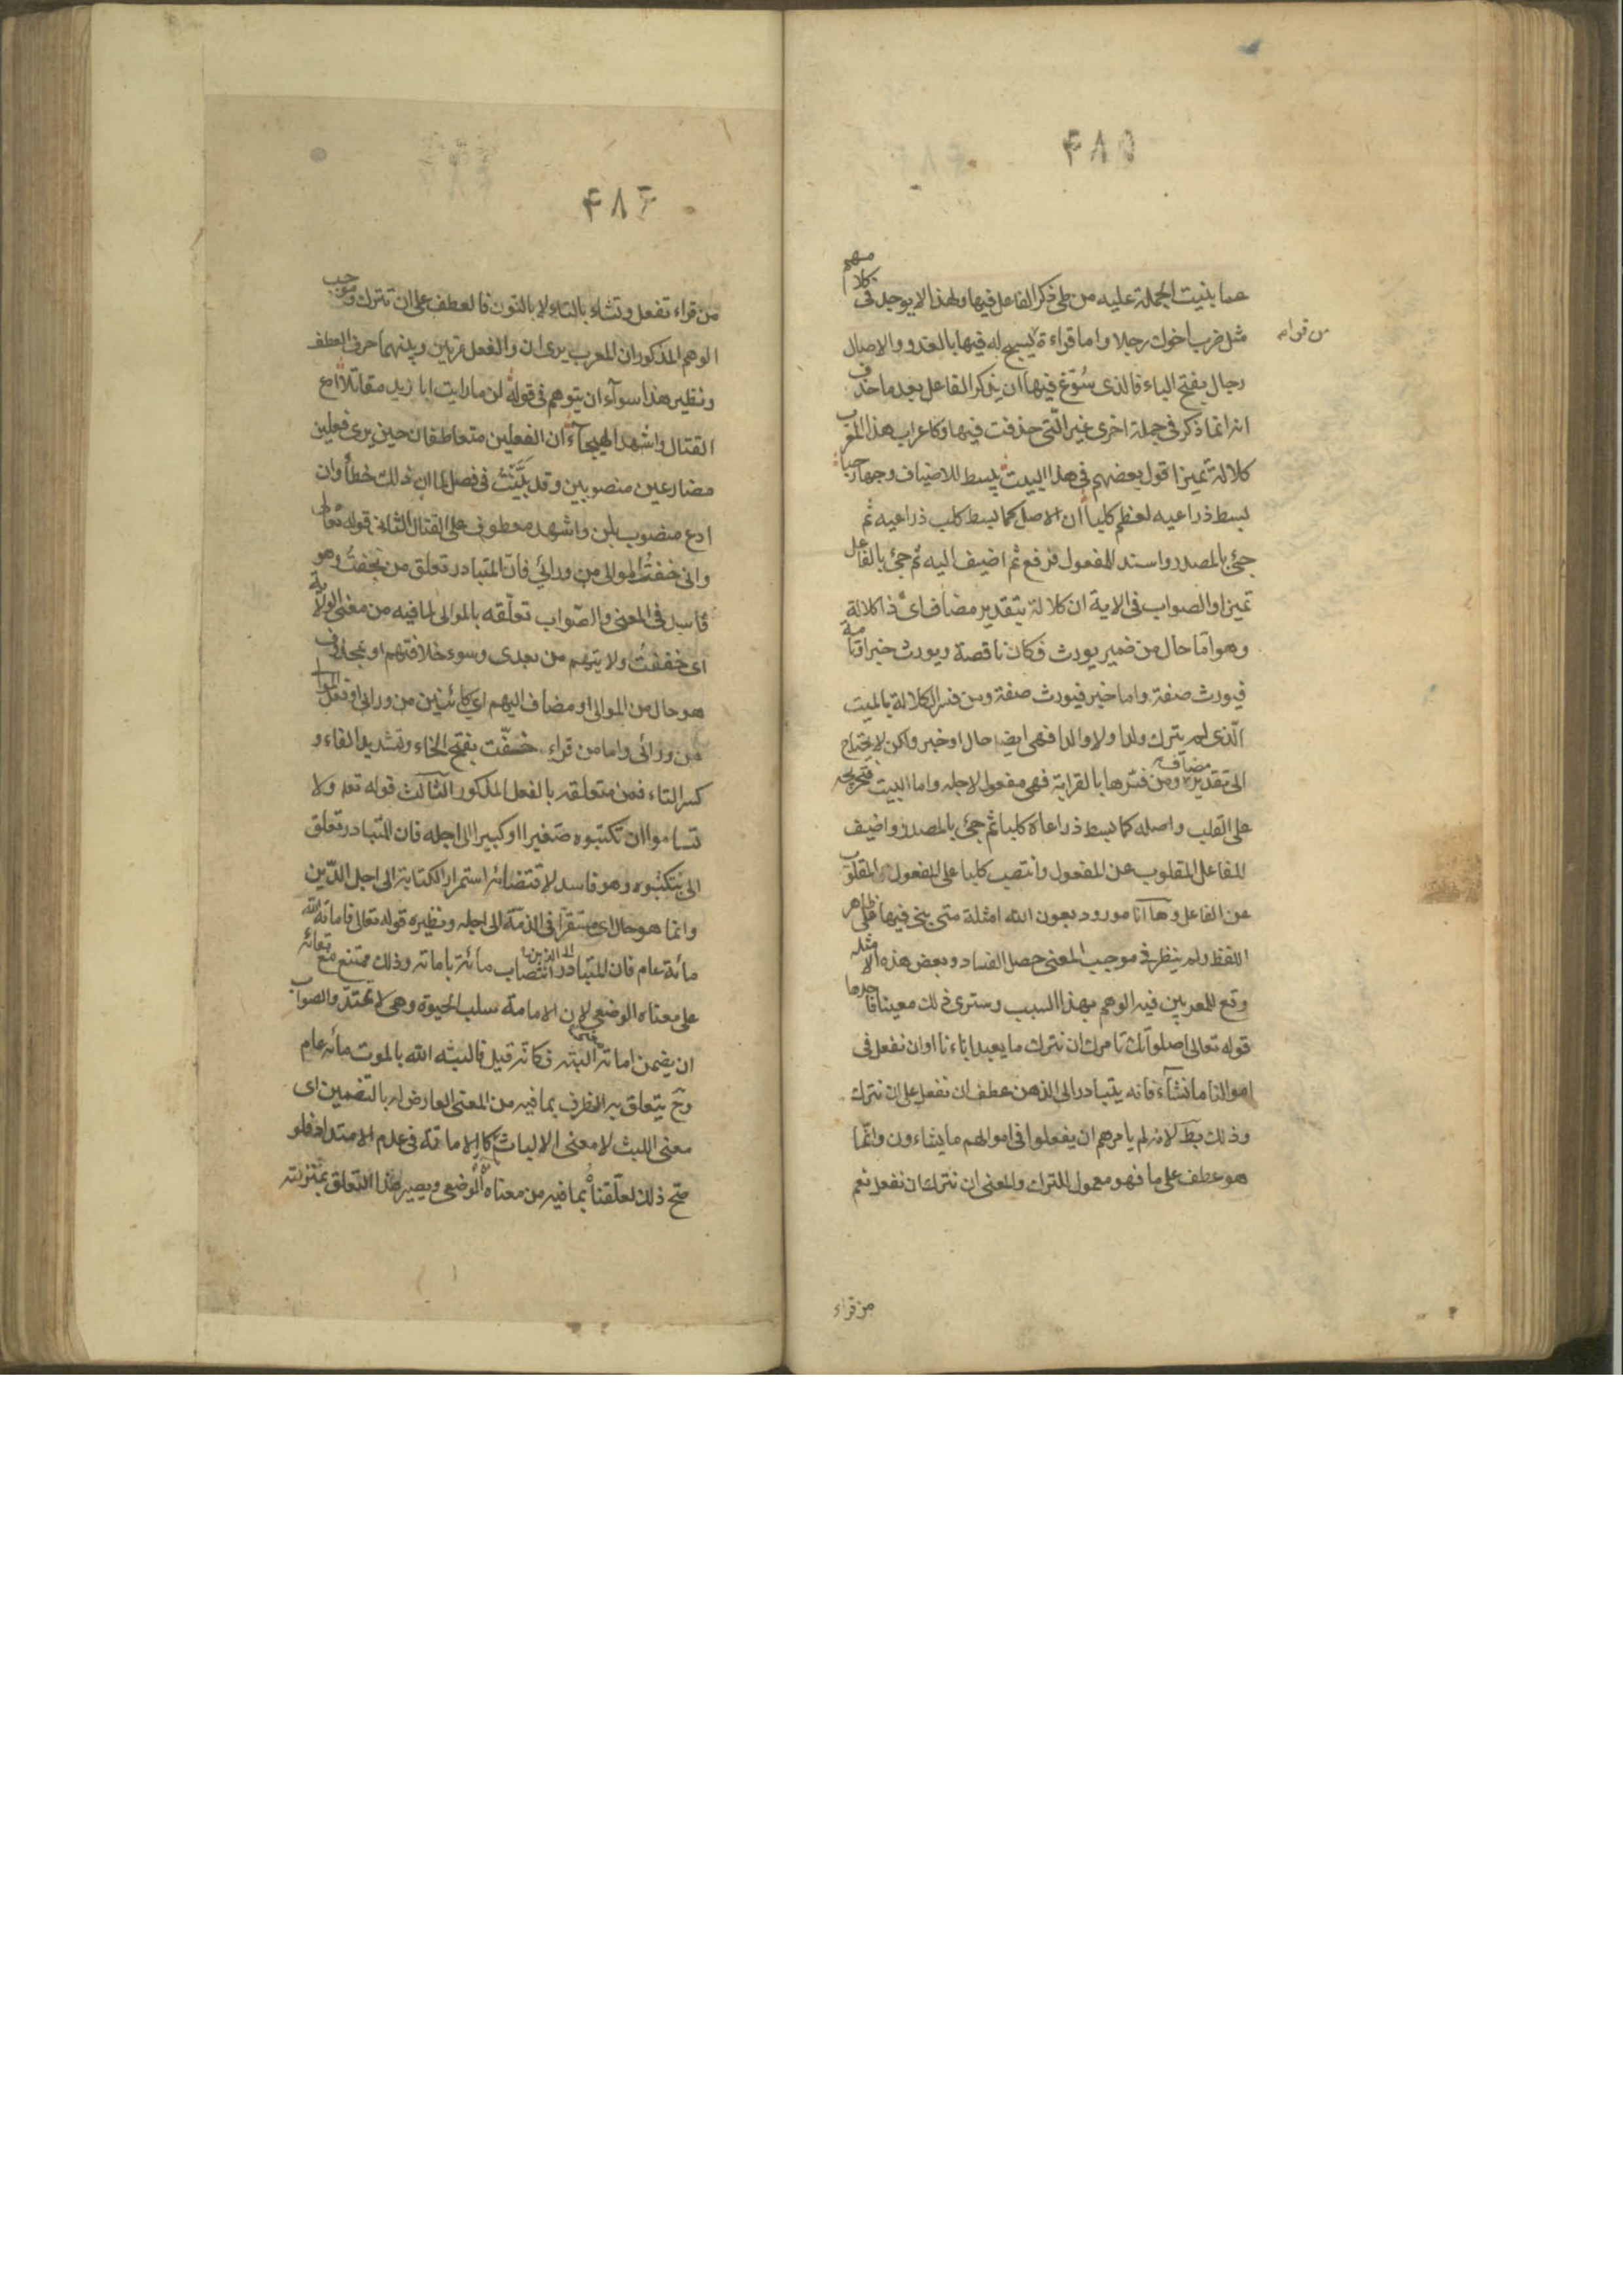 ۴۸۵
عما بنيت الجملة عليه من طى ذكر الفاعل فيها ولهذا لا يوجد فى كلامهم
مثل ضرب اخوك رجلا واما قراءة يسبح له فيها بالغدو والاصال
من قراءه
رجال بفتح الباء فالذى سُوّغ فيها ان يذكر الفاعل بعد ما حذف
انه انما ذكر فى جملة اخرى غير الّتى حذفت فيها وكاعراب هذا المعرب
كلالة تميزا قول بعضهم فى هذا البيت يبسط للاضياف وجها رحبا
بسط ذراعيه لعظم كلبا ان الاصل كما بسط كلب ذراعيه ثم
جئ بالمصدر واسند للمفعول فرفع ثم اضيف اليه ثم جئ بالفاعل
تميزا والصواب فى الاية ان كلالة بتقدير مضاف اى ذا كلالة
وهو اما حال من ضمير يورث فكان ناقصة ويورث خبر او تامة
فيورث صفة واما خبر فيورث صفة ومن فسر الكلالة بالميت
الّذى لم يترك ولدا ولا والدا فهى ايضا حال او خبر ولكن لا يحتاج
الى تقدير مضاف ومن فسّرها بالقرابة فهى مفعول لاجله واما البيت فتخريجه
على القلب واصله كما بسط ذراعاه كلبا ثم جئ بالمصدر واضيف
للفاعل المقلوب عن المفعول وانتصب كلبا على المفعول المقلوب
عن الفاعل وها انا مورد بعون الله امثلة متى بنى فيها على ظاهر
اللفظ ولم ينظر فى موجب المعنى حصل الفساد وبعض هذه الامثلة
وقع للمعربين فيه الوهم بهذا السبب وسترى ذلك معينا فاحدها
قوله تعالى اصلواتك تامرك ان نترك ما يعبد اباءنا او ان نفعل فى
اموالنا ما نشآء فانه يتبادر الى الذهن عطف ان نفعل على ان نترك
وذلك بط لانه لم يامرهم ان يفعلوا فى اموالهم ما يشاءون وانّما
هو عطف على ما فهو معمول للترك والمعنى ان نترك ان نفعل نعم
من قراء
۴۸۶
من قراء تفعل وتشاء بالتاء لا بالنون فالعطف على ان تترك وموجب
الوهم المذكور ان المعرب يرى ان والفعل مرتين وبينهما حرف العطف
ونظير هذا سوآء ان يتوهم فى قوله لن ما رايت ابا زيد مقاتلا ادع
القتال واشهد الهيجآء ان الفعلين متعاطفان حين يرى فعلين
مضارعين منصوبين وقد بيّنت فى فصل لما ان ذلك خطأ وان
ادع منصوب بلن واشهد معطوف على القتال الثانى قوله تعالى
وانى خفت الموالى من ورائى فان المتبادر تعلق من بخفت وهو
فاسد فى المعنى والصواب تعلّقه بالموالى لما فيه من معنى الولاية
اى خفت ولايتهم من بعدى وسوء خلافتهم او بمحذوف
هو حال من الموالى او مضاف اليهم اى كائنين من ورائى او فعل الموالى
من ورائى واما من قراء خفّت بفتح الخاء وتشديد الفاء و
كسر التاء فمن متعلقه بالفعل المذكور الثالث قوله تعلم ولا
تساموا ان تكتبوه صغيرا او كبيرا الى اجله فان المتبادر تعلق
الى بتكتبوه وهو فاسد لاقتضائه استمرار الكتابة الى اجل الدّين
وانما هو حال اى مستقرّا فى الذمة الى اجله ونظيره قوله تعالى فاماته الله
مائة عام فان المتبادر الى الذهن انتصاب مائة باماته وذلك ممتنع مع بقائه
على معناه الوضعى لان الاماتة سلب الحيوة وهى لا تمتدّ والصواب
ان يضمن اماته معنى البثه فكانّه قيل فالبثه الله بالموت مائة عام
وح يتعلق به الظرف بما فيه من المعنى العارض له بالتضمين اى
معنى اللبث لا معنى الالباث لانه كالاماتة فى عدم الامتداد فلو
صح ذلك لعلّقناه بما فيه من معناه الوضعى ويصير هذا التعلق بمنزلته